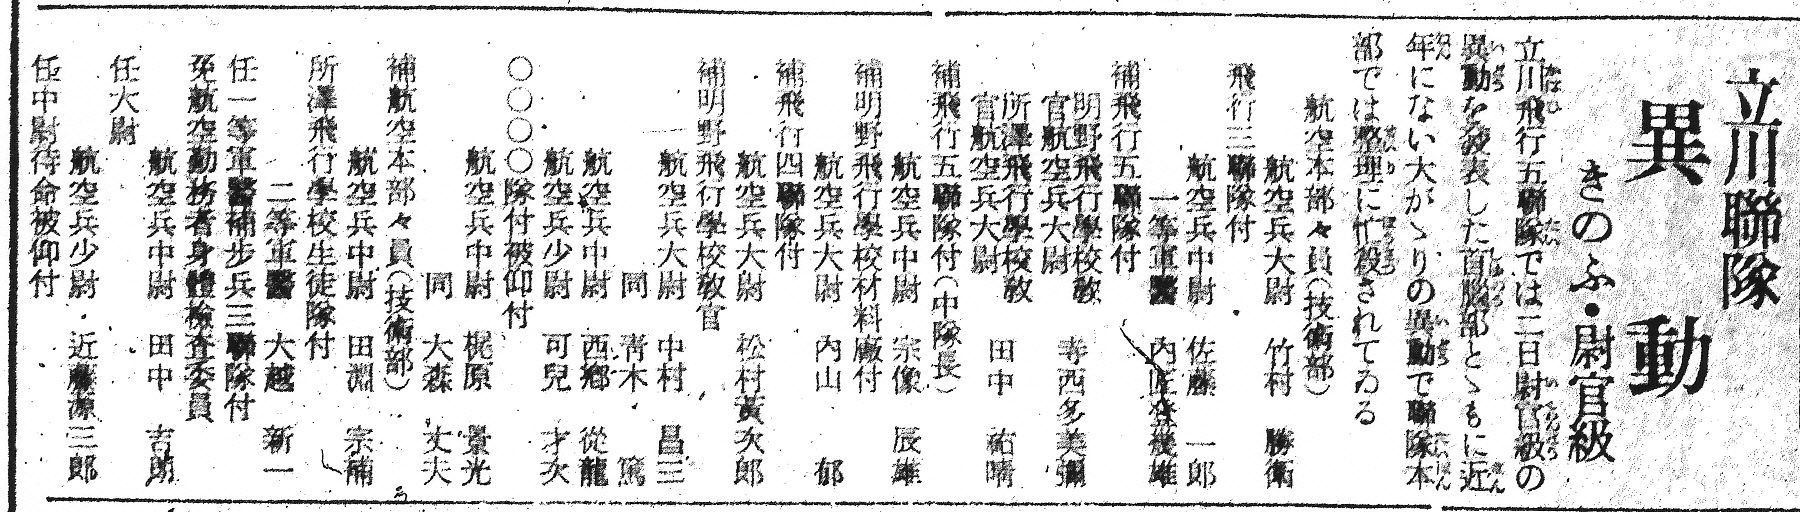 立川聯隊
異動
きのふ・尉官級
立川飛行五聯隊では二日尉官級の
異動を發表した首腦部とゝもに近
年にない大がゝりの異動で聯隊本
部では整理に忙殺されてゐる
航空本部々員（技術部）
航空兵大尉　竹村　勝衛
飛行三聯隊付
航空兵中尉　佐藤　一郎
一等軍醫　內匠　幾雄
補飛行五聯隊付
明野飛行學校教
官航空兵大尉　寺西多美彌
所澤飛行學校教
官航空兵大尉　田中　祐晴
補飛行五聯隊付（中隊長）
航空兵中尉　宗像　辰雄
補明野飛行學校材料廠付
航空兵大尉　內山　郁
補飛行四聯隊付
航空兵大尉　松村黃次郎
補明野飛行學校教官
航空兵大尉　中村　昌三
同　青木　篤
航空兵中尉　西鄕　從龍
航空兵少尉　可兒　才次
〇〇〇〇隊付被仰付
航空兵中尉　梶原　景光
同　大森　丈夫
補航空本部々員（技術部）
航空兵中尉　田淵　宗補
所澤飛行學校生徒隊付
二等軍醫　大越　新一
任一等軍醫補步兵三聯隊付
免航空勤務者身體檢查委員
航空兵中尉　田中　吉助
任大尉
航空兵少尉・近藤源三郎
任中尉待命被仰付